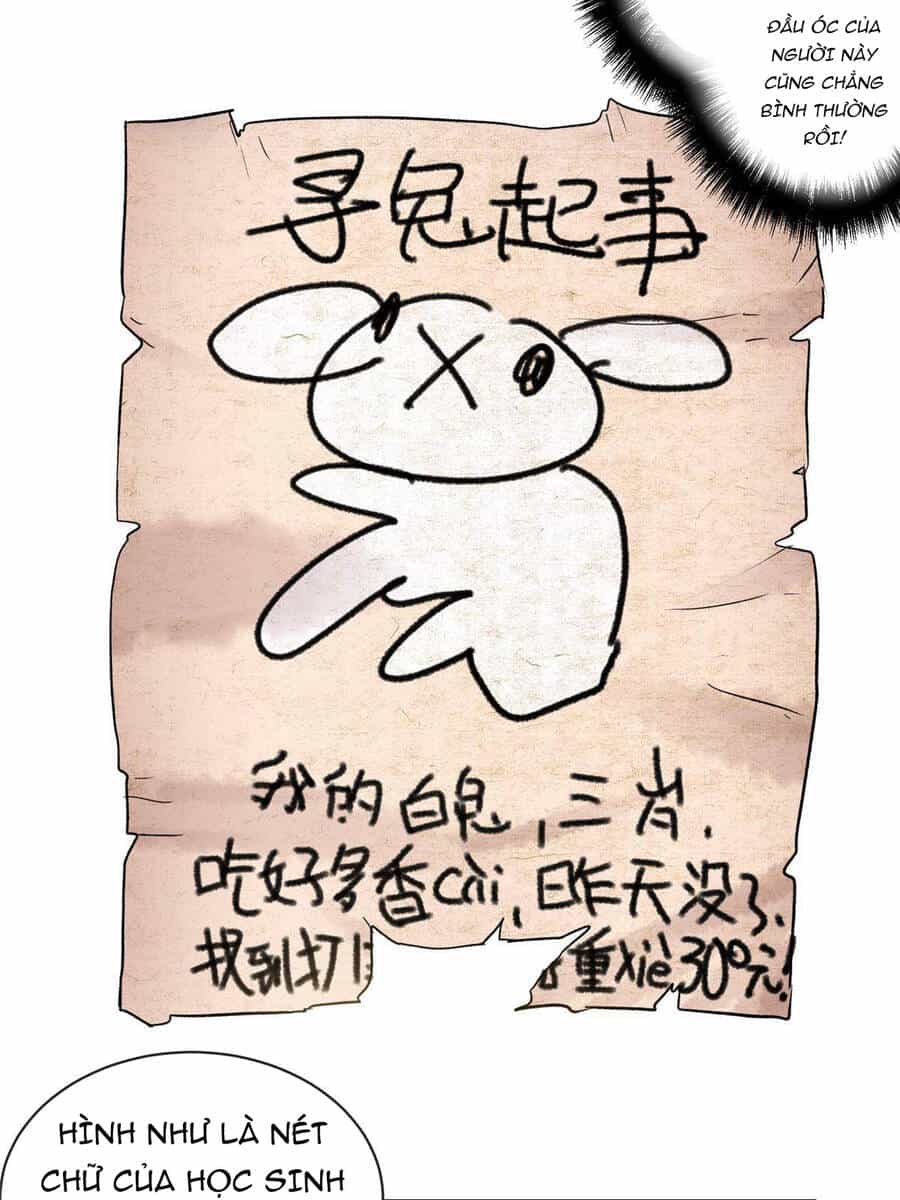 ĐẦU ÓC CỦA
NGƯỜI NÀY
CŨNG CHẲNG
BÌNH THƯỜNG
RỒI!
寻兔起事
我的白兔，三岁，
吃好多香cài，昨天没了，
找到打 重xiè300元！
HÌNH NHƯ LÀ NÉT
CHỮ CỦA HỌC SINH